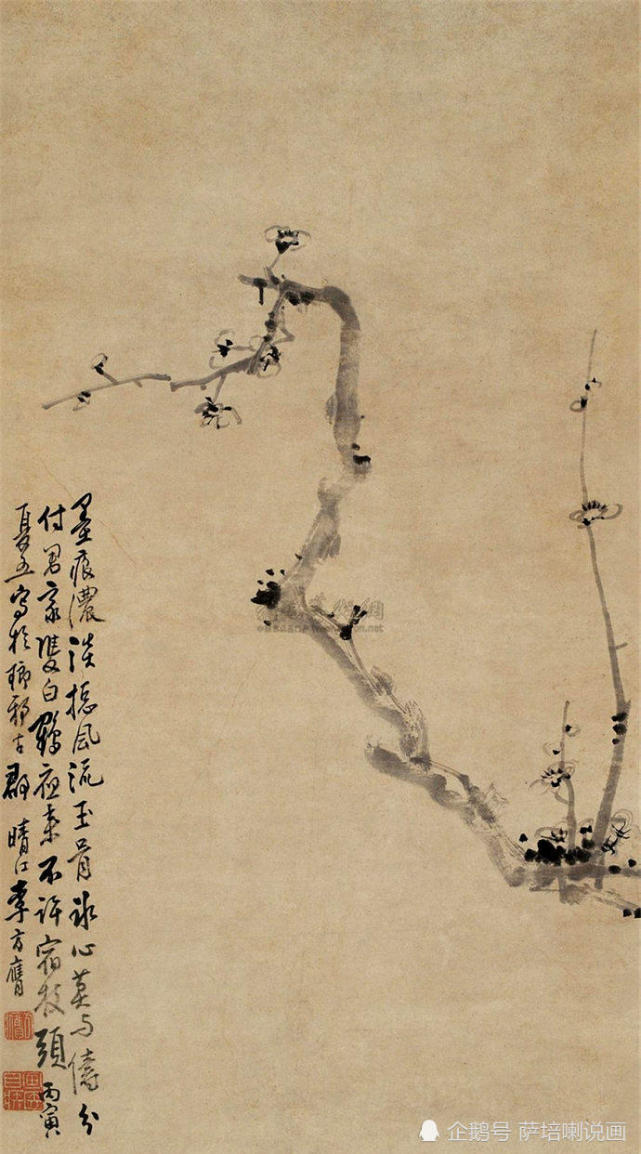 墨痕濃淡揔風流玉骨冰心莫与儔分
付君家雙白鶴夜来不許宿枝頭丙寅
夏五寫於瑯邪古郡晴江李方膺
企鹅号 萨培喇说画